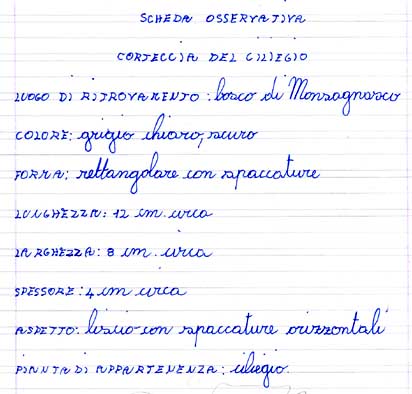 SCHEDA OSSERVATIVA
CORTECCIA DEL CILIEGIO
LUOGO DI RITROVAMENTO: bosco di Monsagnasco
COLORE: grigio chiaro, scuro
FORMA: rettangolare con spaccature
LUNGHEZZA: 12 cm. circa
LARGHEZZA: 8 cm. circa
SPESSORE: 4 cm circa
ASPETTO: liscio con spaccature orizzontali
PIANTA DI APPARTENENZA: ciliegio.